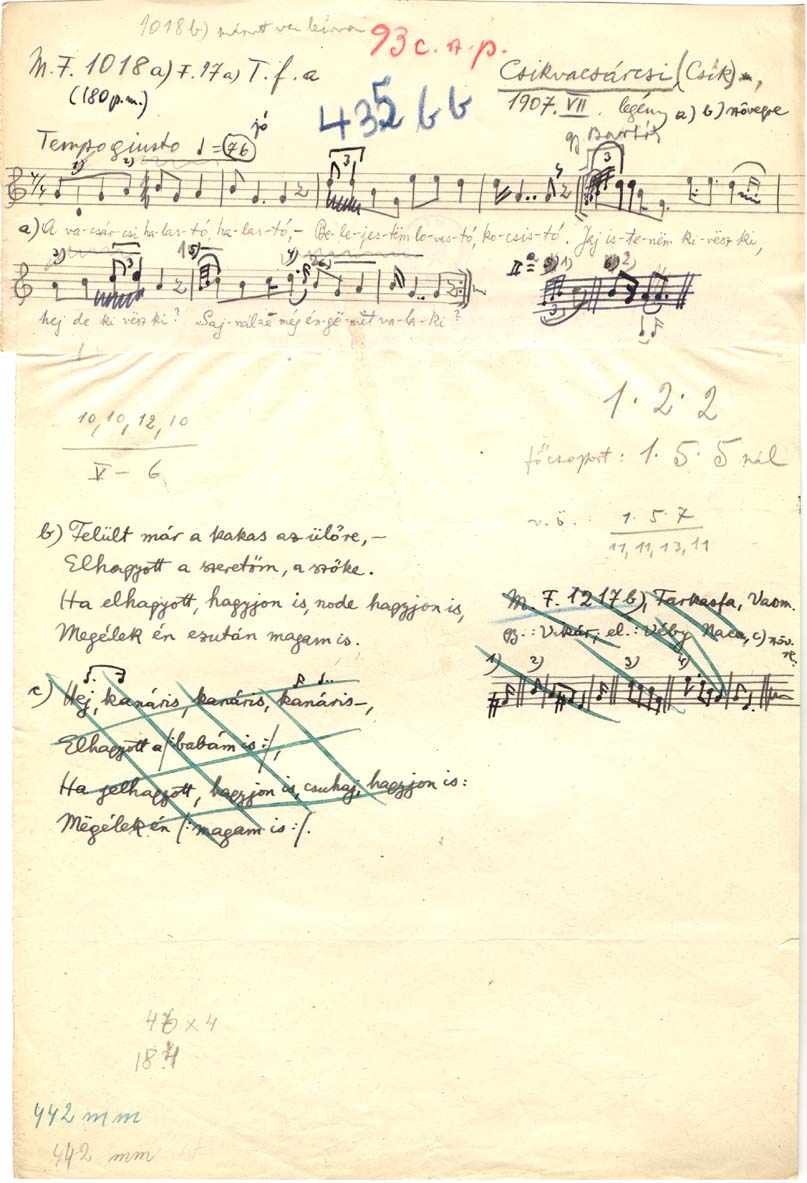 1018 b)
93 c. sz. p.
M. F. 1018 a) F. 97 a) T. f. a
Csikvacsárcsi (Csík),
(180 p.m.)
435 bb
1907. VII. legény a) b) szövegre
gy. Bartók
jó
Tempo giusto = 76
a) A va-csár-csi ha-las-tó, ha-las-tó,– Be-le-jes-tëm lo-vas-tó, ko-csis-tó. Jaj is-te-nëm ki-vësz ki,
hej de ki vësz ki? Saj-nál-ë még ën-gë-mët va-la-ki?
1 · 2 · 2
10, 10, 12, 10
V – 6
főcsoport: 1 · 5 · 5 nál
v. ö.: 1 · 5 · 7
11, 11, 13, 11
b) Felült már a kakas az ülőre,–
Elhagyott a szeretőm, a szőke.
Ha elhagyott, hagyjon is, node hagyjon is,
Megélek én ezután magam is.
M. F. 1217 b), Farkasfa, Vasm.
Gy.: Vikár, el.: Véby Naca, c) szöv.
1) 2) 3) 4)
c) Hej, kanáris, kanáris, kanáris–,
Elhagyott a /: babám is :/,
Ha jelhagyott, hagyjon is, csuhaj, hagyjon is:
Mëgélek én /: magam is :/.
46 x 4
184
442 mm
442 mm